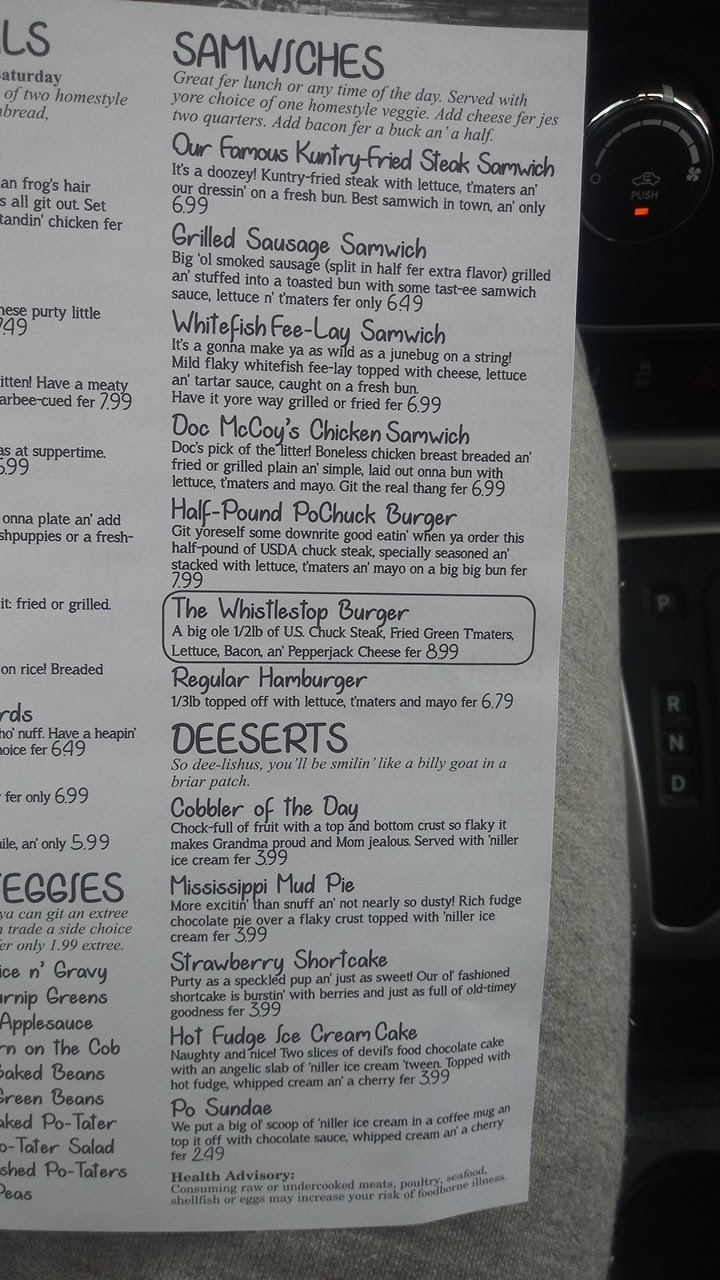 LS
aturday
of two homestyle
nbread,
an frog's hair
s all git out. Set
tandin' chicken fer
hese purty little
7.49
itten! Have a meaty
arbee-cued fer 7.99
as at suppertime.
5.99
onna plate an' add
shpuppies or a fresh-
it: fried or grilled.
on rice! Breaded
rds
ho' nuff. Have a heapin'
hoice fer 6.49
fer only 6.99
ile, an' only 5.99
EGGIES
ya can git an extree
trade a side choice
er only 1.99 extree.
ice n' Gravy
urnip Greens
Applesauce
rn on the Cob
Baked Beans
Green Beans
aked Po-Tater
o-Tater Salad
shed Po-Taters
Peas
SAMWICHES
Great fer lunch or any time of the day. Served with
yore choice of one homestyle veggie. Add cheese fer jes
two quarters. Add bacon fer a buck an' a half.
Our Famous Kuntry-Fried Steak Samwich
It's a doozey! Kuntry-fried steak with lettuce, t'maters an'
our dressin' on a fresh bun. Best samwich in town, an' only
6.99
Grilled Sausage Samwich
Big 'ol smoked sausage (split in half fer extra flavor) grilled
an' stuffed into a toasted bun with some tast-ee samwich
sauce, lettuce n' t'maters fer only 6.49
Whitefish Fee-Lay Samwich
It's a gonna make ya as wild as a junebug on a string!
Mild flaky whitefish fee-lay topped with cheese, lettuce
an' tartar sauce, caught on a fresh bun.
Have it yore way grilled or fried fer 6.99
Doc McCoy's Chicken Samwich
Doc's pick of the litter! Boneless chicken breast breaded an'
fried or grilled plain an' simple, laid out onna bun with
lettuce, t'maters and mayo. Git the real thang fer 6.99
Half-Pound PoChuck Burger
Git yoreself some downrite good eatin' when ya order this
half-pound of USDA chuck steak, specially seasoned an'
stacked with lettuce, t'maters an' mayo on a big big bun fer
7.99
The Whistlestop Burger
A big ole 1/2lb of U.S. Chuck Steak, Fried Green T'maters,
Lettuce, Bacon, an' Pepperjack Cheese fer 8.99
Regular Hamburger
1/3lb topped off with lettuce, t'maters and mayo fer 6.79
DEESERTS
So dee-lishus, you'll be smilin' like a billy goat in a
briar patch.
Cobbler of the Day
Chock-full of fruit with a top and bottom crust so flaky it
makes Grandma proud and Mom jealous. Served with 'niller
ice cream fer 3.99
Mississippi Mud Pie
More excitin' than snuff an' not nearly so dusty! Rich fudge
chocolate pie over a flaky crust topped with 'niller ice
cream fer 3.99
Strawberry Shortcake
Purty as a speckled pup an' just as sweet! Our ol' fashioned
shortcake is burstin' with berries and just as full of old-timey
goodness fer 3.99
Hot Fudge Ice Cream Cake
Naughty and nice! Two slices of devil's food chocolate cake
with an angelic slab of 'niller ice cream 'tween. Topped with
hot fudge, whipped cream an' a cherry fer 3.99
Po Sundae
We put a big ol' scoop of 'niller ice cream in a coffee mug an
top it off with chocolate sauce, whipped cream an' a cherry
fer 2.49
Health Advisory:
Consuming raw or undercooked meats, poultry, seafood,
shellfish or eggs may increase your risk of foodborne illness.
PUSH
P
R
N
D